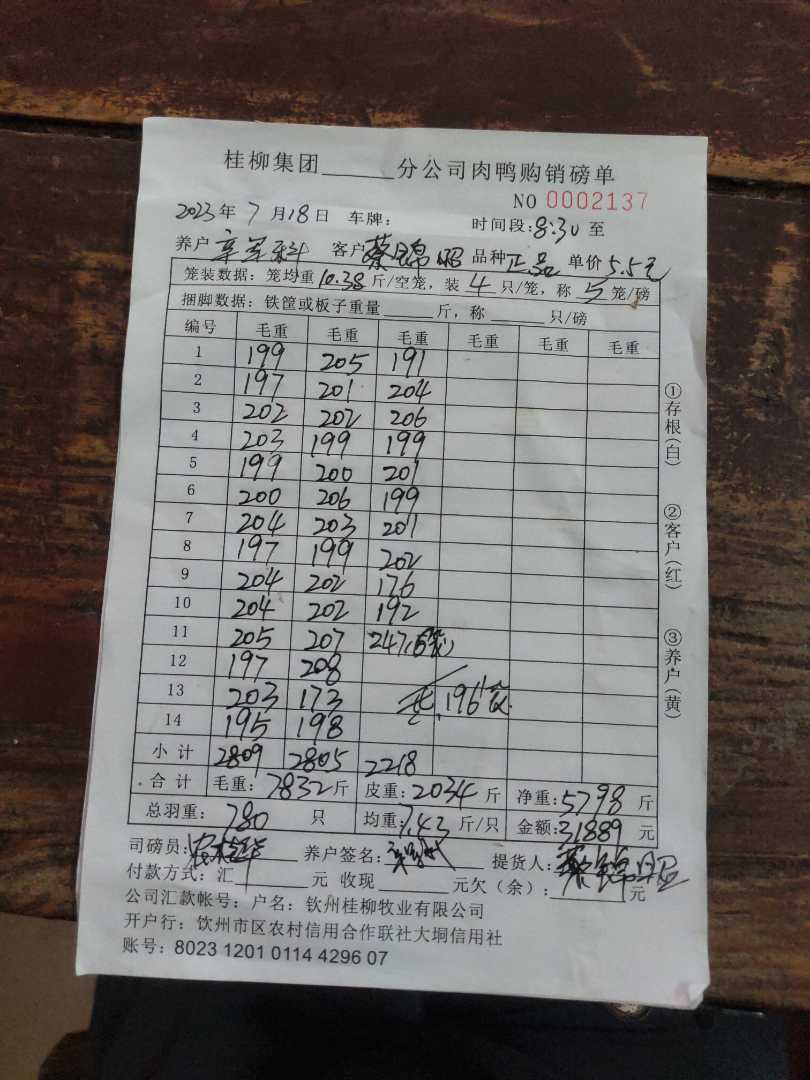 桂柳集团______分公司肉鸭购销磅单
NO 0002137
2023年 7月18日 车牌: 时间段:8:30至
养户 客户 蔡锦昭 品种 正品 单价 5.5元
笼装数据: 笼均重10.38斤/空笼, 装4只/笼, 称5笼/磅
捆脚数据: 铁筐或板子重量______斤, 称______只/磅
编号 毛重 毛重 毛重 毛重 毛重 毛重
1 199 205 191
2 197 201 204
3 202 202 206
4 203 199 199
5 199 200 201
6 200 206 199
7 204 203 201
8 197 199 202
9 204 202 176
10 204 202 192
11 205 207 247(6笼)
12 197 208
13 203 173 共196笼
14 195 198
小计 2809 2805 2218
合计 毛重:7832斤 皮重:2034斤 净重:5798斤
总羽重: 780 只 均重:7.43斤/只 金额:31889元
司磅员: 养户签名: 提货人:蔡锦昭
付款方式: 汇______元 收现______元欠(余):______元
公司汇款帐号: 户名: 钦州桂柳牧业有限公司
开户行: 钦州市区农村信用合作联社大垌信用社
账号: 8023 1201 0114 4296 07
①存根(白)
②客户(红)
③养户(黄)